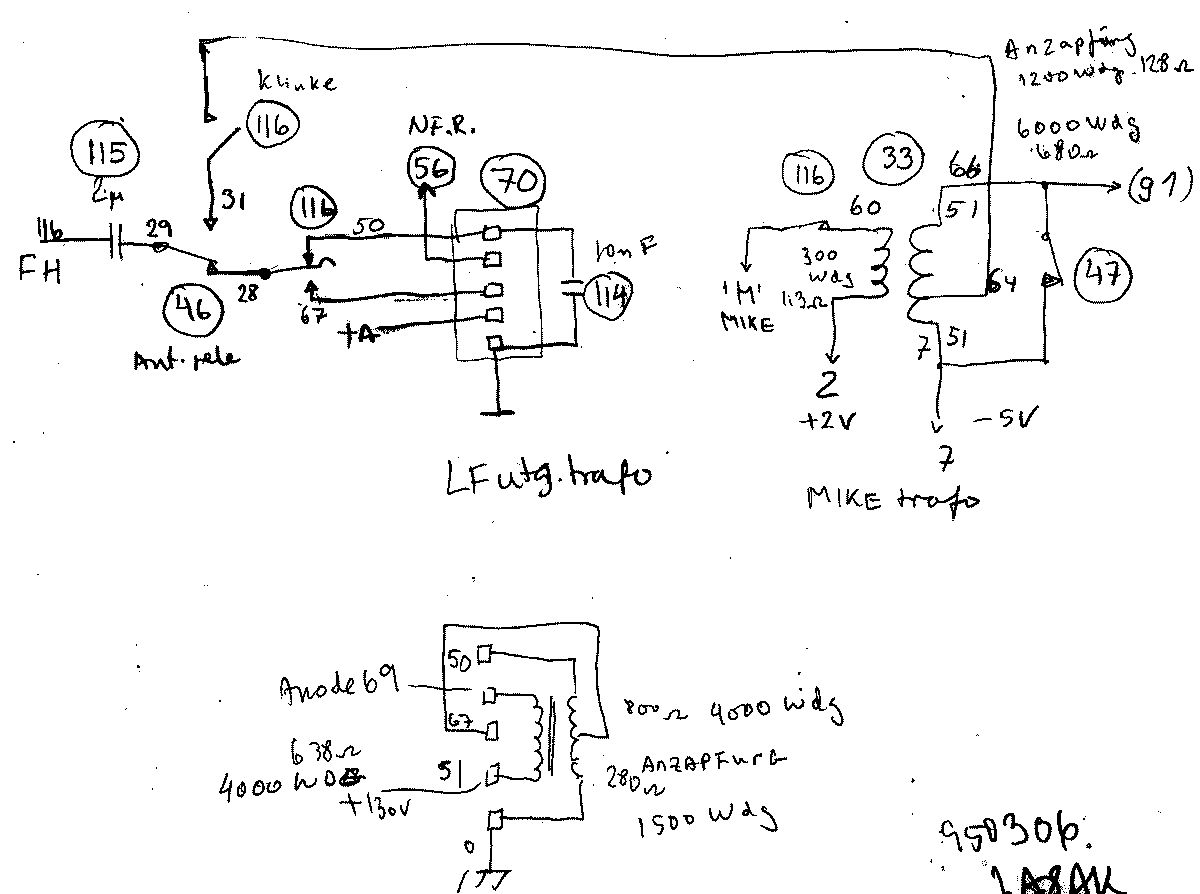 Klinke
116
115
2µ
116
FH
29
31
46
28
Ant. rele
116
50
67
+A
N.F.R.
56
70
114
LF utg. trafo
Anzapfung
1200 wdg. 128Ω
6000 Wdg
680Ω
116
33
60
51
(g1)
300
wdg
1.3Ω
'M'
MIKE
64
47
7
51
2
+2V
-5V
7
MIKE trafo
50
Anode 69
67
638Ω
4000 WDG
51
+130V
0
800Ω 4000 Wdg
ANZAPFUNG
280Ω
1500 Wdg
950306.